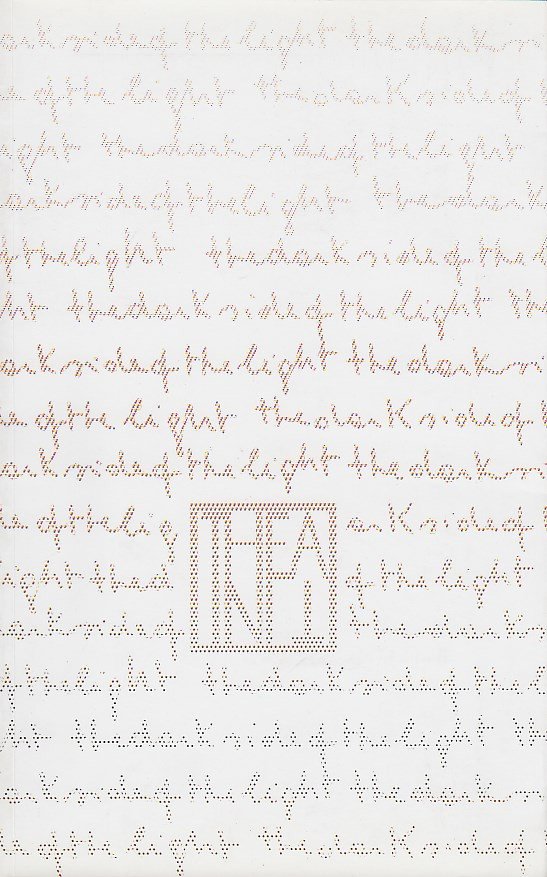 ark side of the light the dark si
e of the light the dark side of t
ight the dark side of the light
ark side of the light the dark
f the light the dark side of the l
ht the dark side of the light th
ark side of the light the dark si
e of the light the dark side of t
ark side of the light the dark si
e of the lig THEA ark side of t
ight the d of the light
ark side of the dark s
f the light the dark side of the l
ht the dark side of the light th
ark side of the light the dark si
e of the light the dark side of